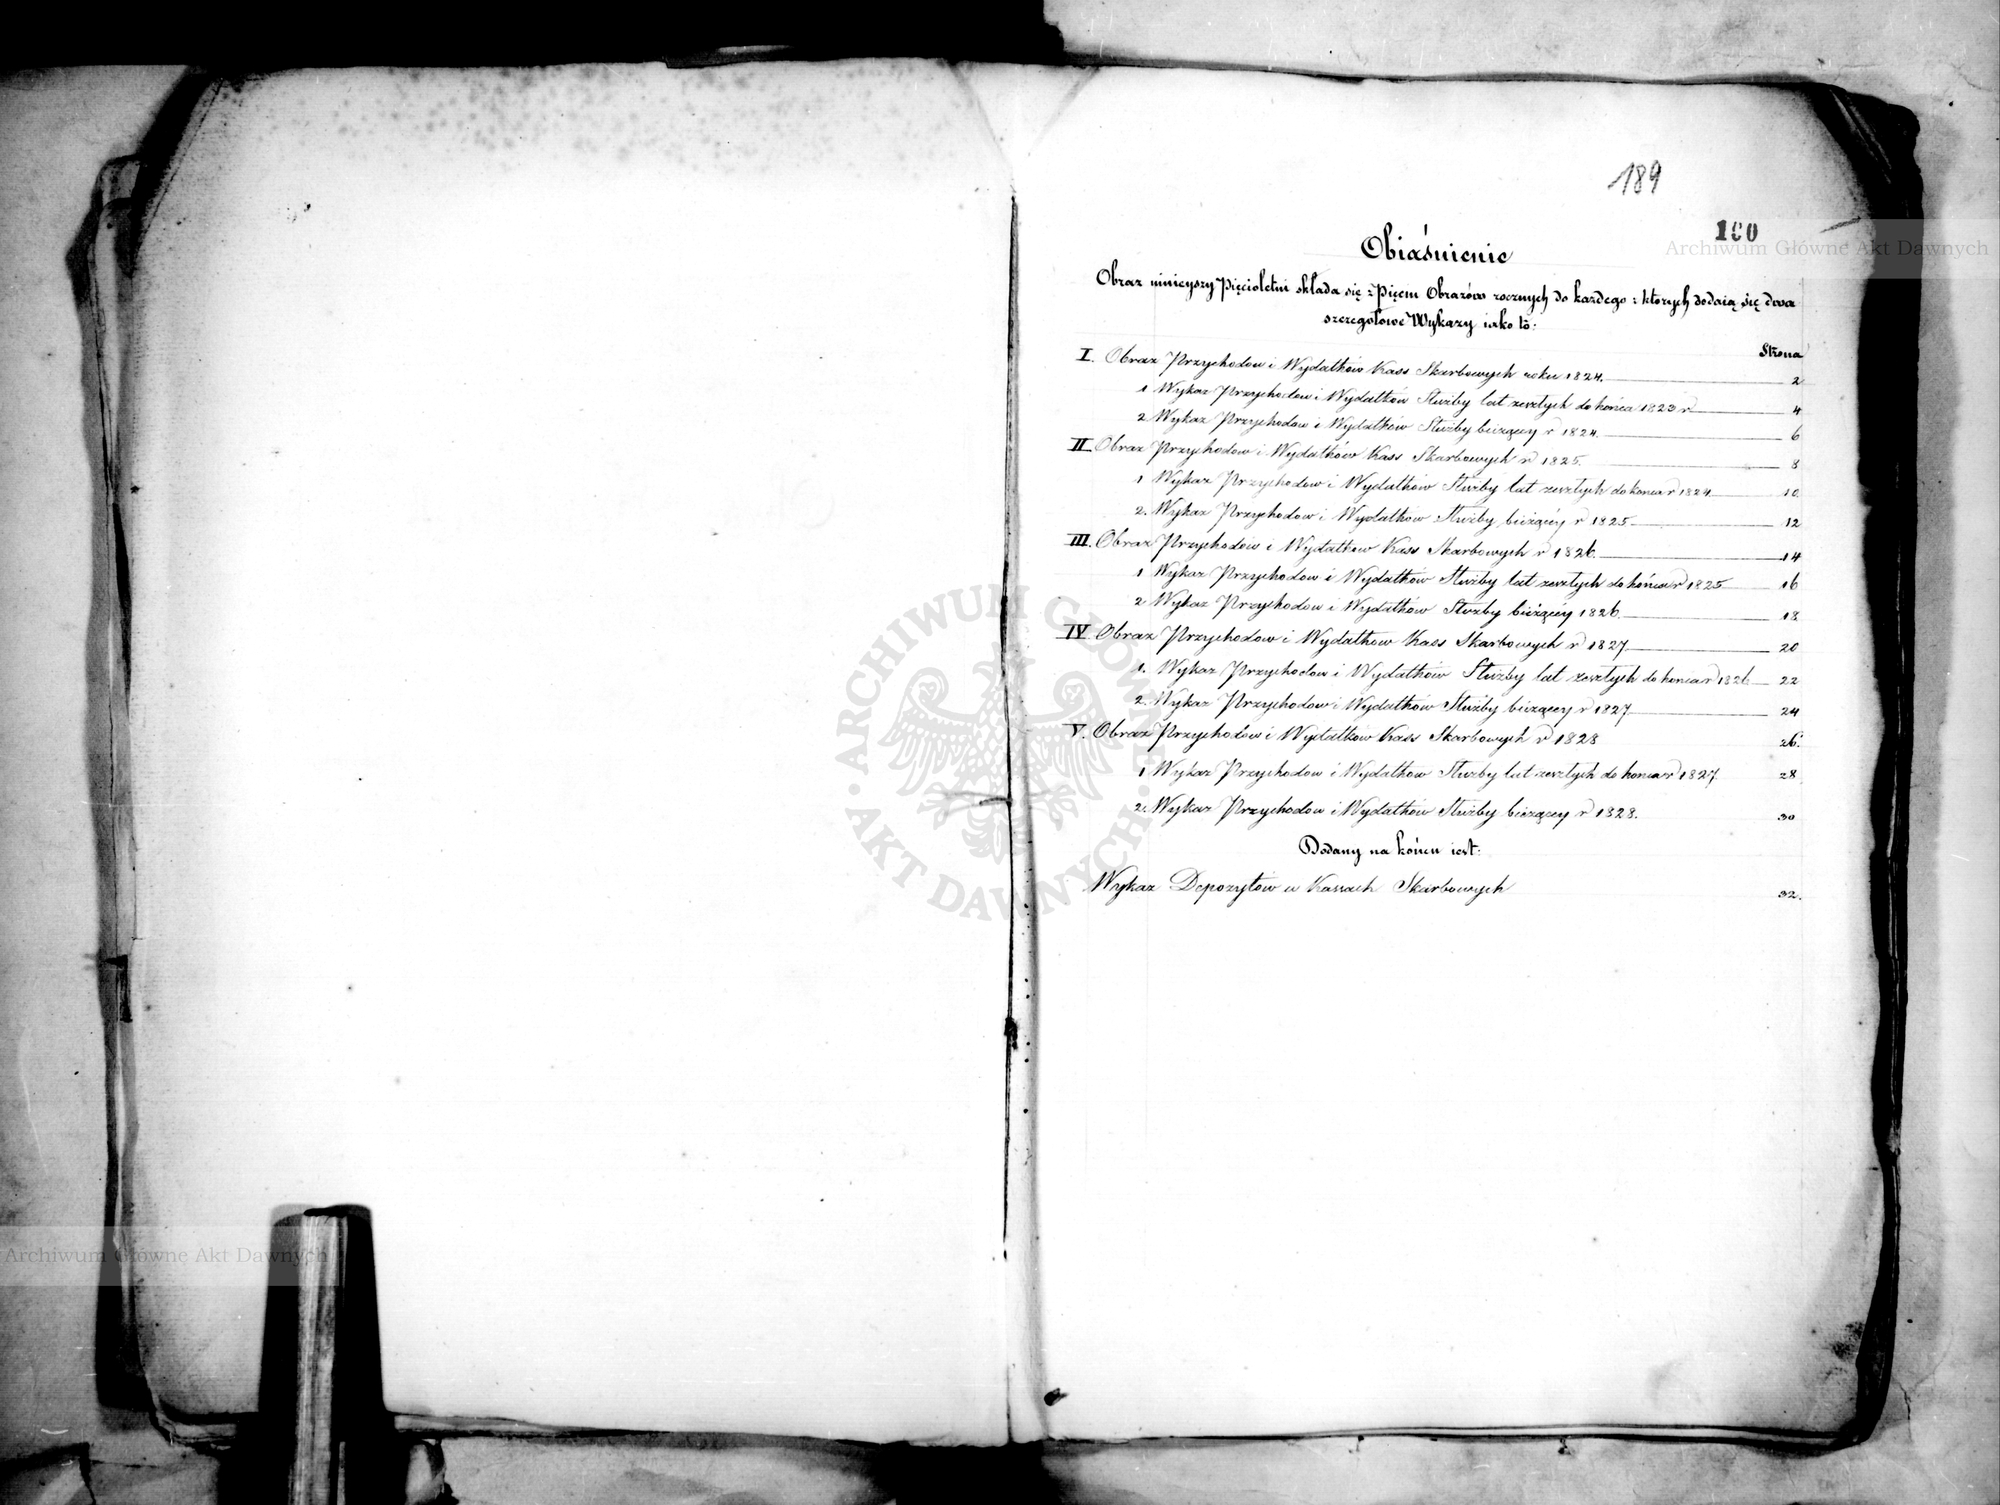 189
100
Obiaśnienie
Obraz ninieyszy Pięcioletni składa się z Pięciu Obrazów rocznych do każdego z których dodaią się dwa
szczegołowe Wykazy iako to:
Strona
I. Obraz Przychodow i Wydatków Kass Skarbowych roku 1824. 2
1 Wykaz Przychodow i Wydatków Służby lat zeszłych do końca 1823 r 4
2 Wykaz Przychodow i Wydatków Służby bieżącey r 1824. 6
II Obraz Przychodow i Wydatków Kass Skarbowych r 1825. 8
1 Wykaz Przychodow i Wydatków Służby lat zeszłych do konca r 1824 10
2. Wykaz Przychodow i Wydatków Służby bieżącéy r 1825 12
III. Obraz Przychodów i Wydatkow Kass Skarbowych r 1826. 14
1 Wykaz Przychodow i Wydatków Służby lat zeszłych do końca r 1825 16
2 Wykaz Przychodow i Wydatków Służby bieżącéy 1826. 18
IV Obraz Przychodow i Wydatkow Kass Skarbowych r 1827. 20
1. Wykaz Przychodow i Wydatków Służby lat zeszłych do konca r 1826 22
2. Wykaz Przychodow i Wydatków Służby bieżącey r 1827. 24
V. Obraz Przychodow i Wydatkow Kass Skarbowych r 1828 26.
1 Wykaz Przychodow i Wydatkow Służby lat zeszłych do konca r 1827. 28
2. Wykaz Przychodow i Wydatków Służby bieżącey r 1828. 30
Dodany na końcu iest:
Wykaz Depozytow w Kassach Skarbowych 32.
Archiwum Główne Akt Dawnych
ARCHIWUM GŁÓWNE · AKT DAWNYCH ·
Archiwum Główne Akt Dawnych